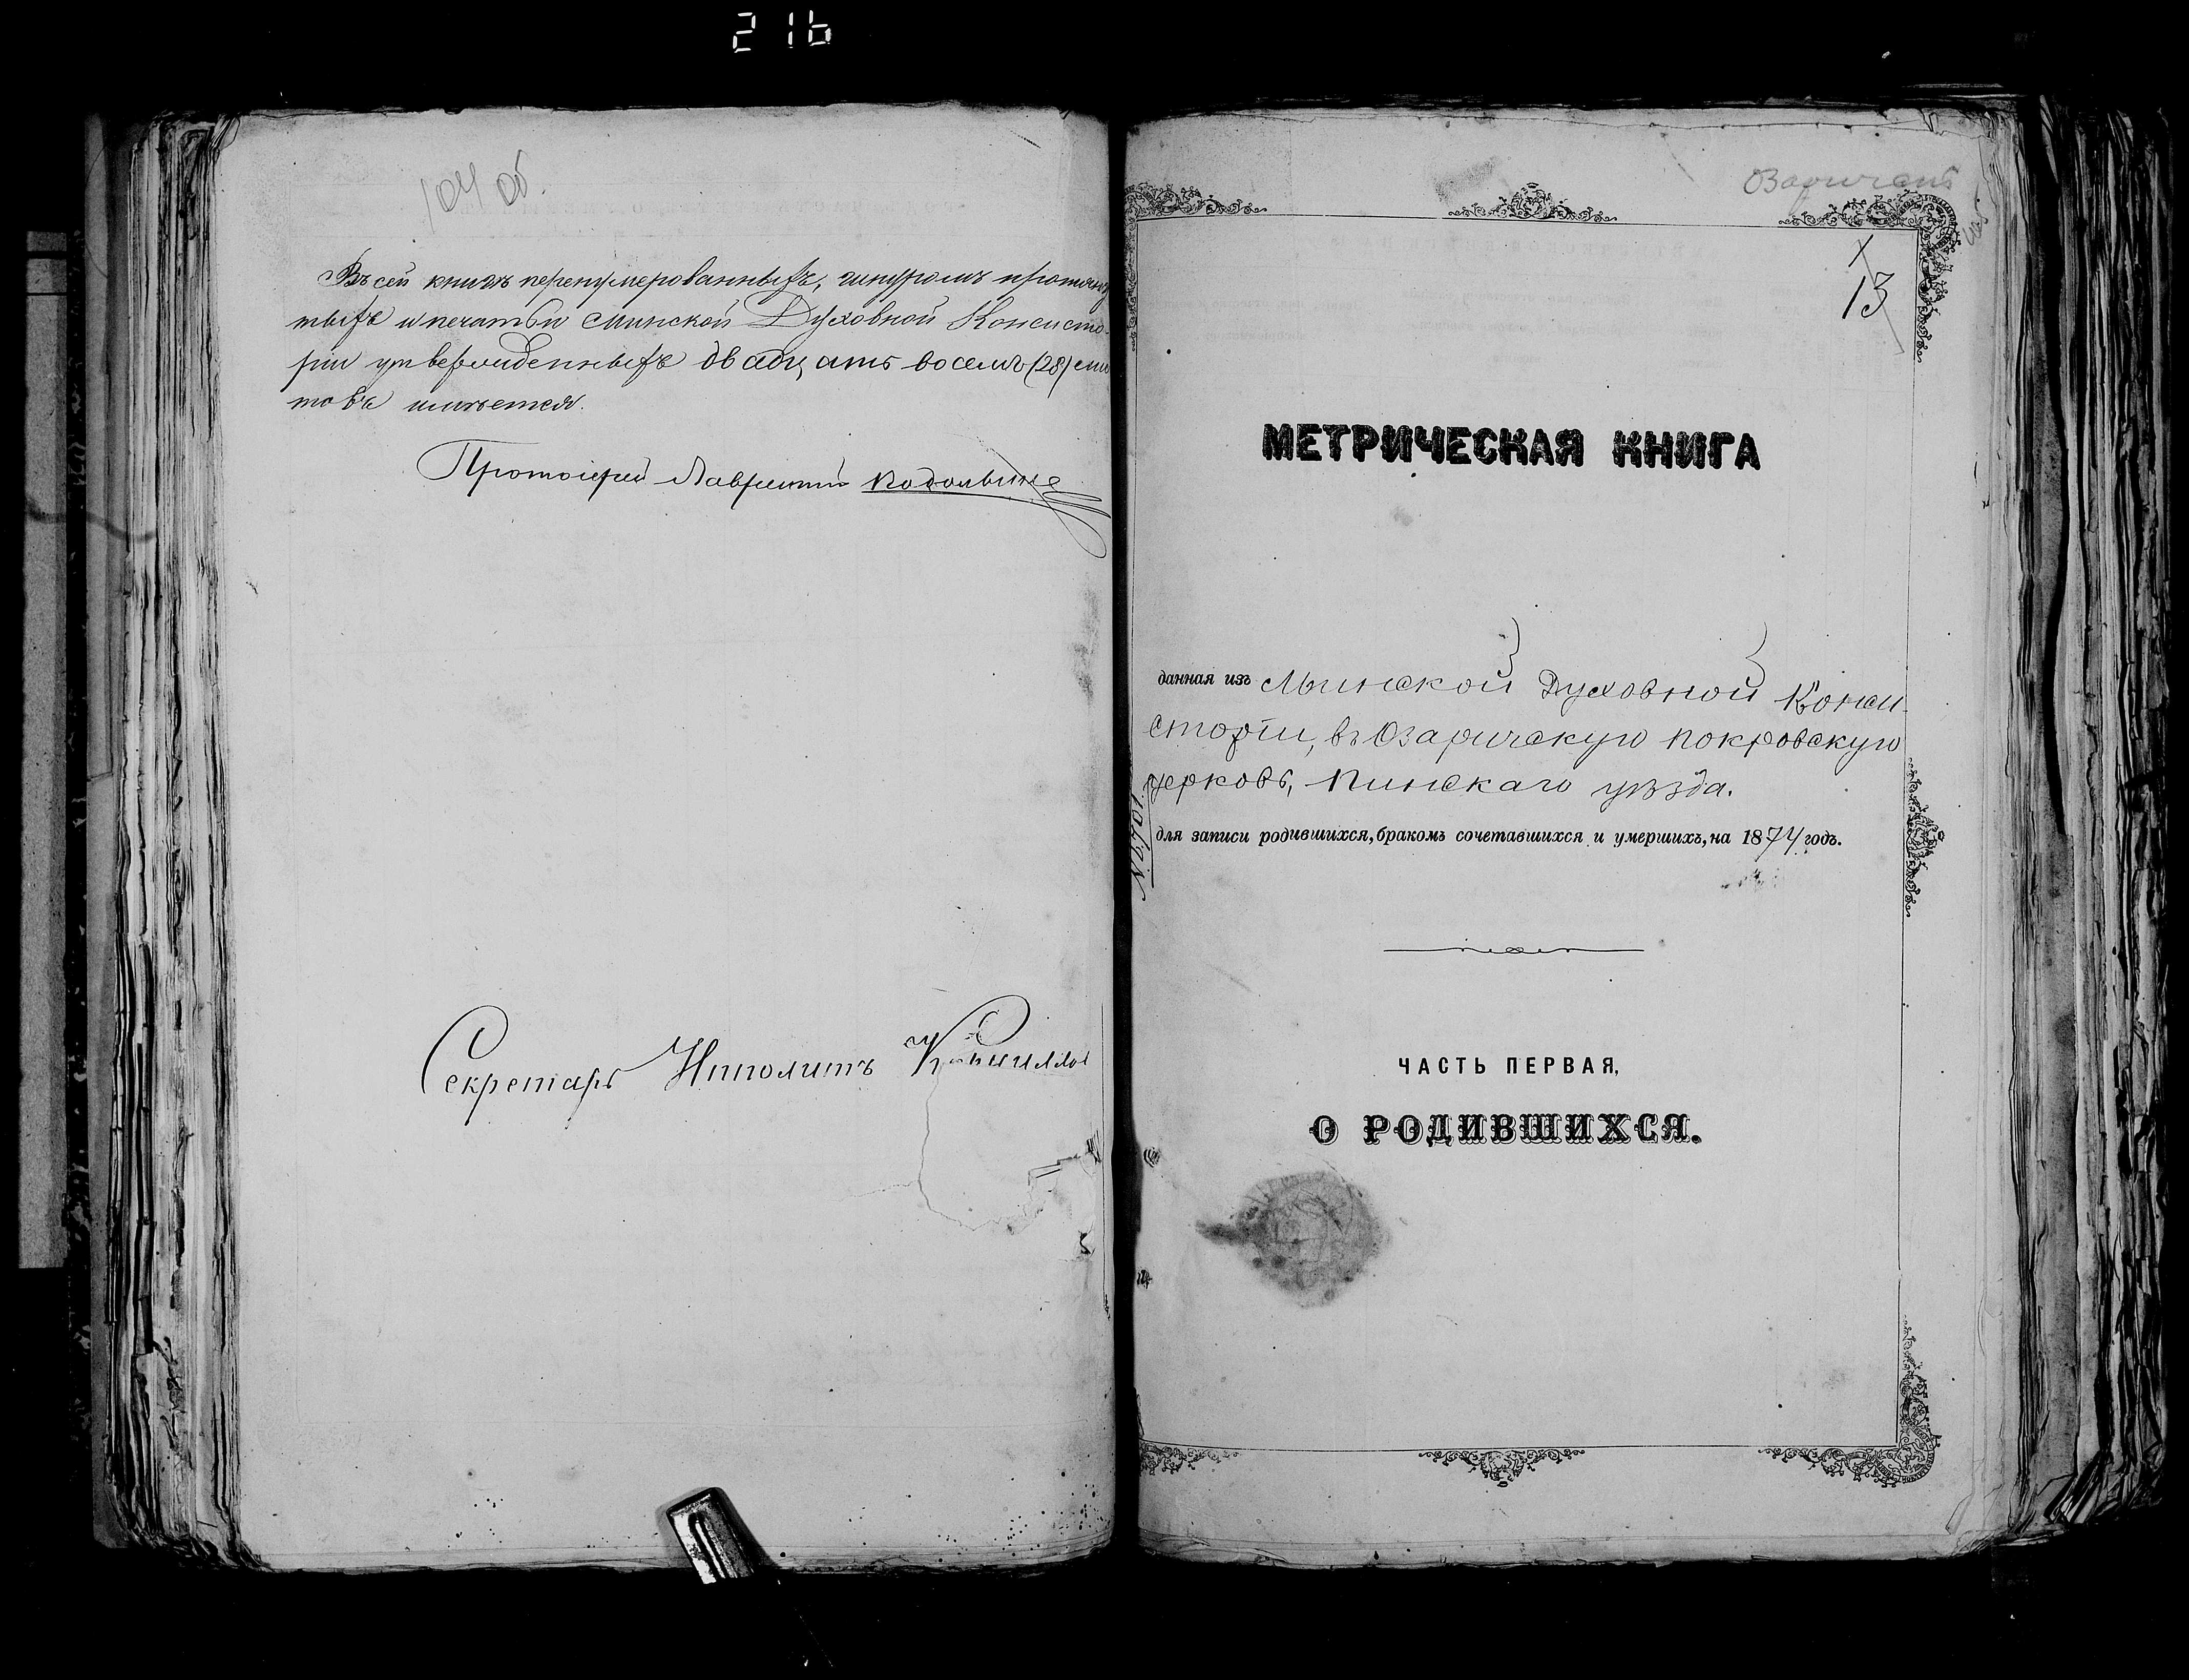 216
104 об.
Въ сей книгѣ перенумерованныхъ, шнуромъ протяну-
тыхъ и печатью Минской Духовной Консисто-
ріи утвержденныхъ двадцать восемь (28) лис
товъ имѣется.
Протоіерей Лаврентій
Секретарь Ипполитъ
Озаричская
13
МЕТРИЧЕСКАЯ КНИГА
данная изъ Минской Духовной Конси-
сторіи, въ Озаричскую Покровскую
церковь, Пинскаго уѣзда.
для записи родившихся, бракомъ сочетавшихся и умершихъ, на 1874 годъ.
ЧАСТЬ ПЕРВАЯ,
О РОДИВШИХСЯ.